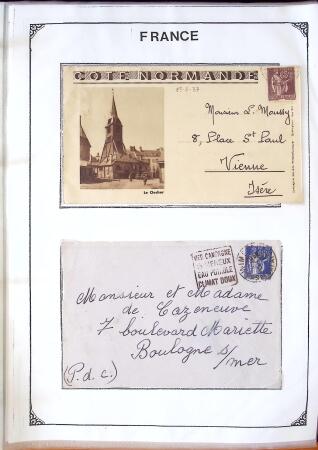 FRANCE
COTE NORMANDE
Monsieur L. Moussy
8, Place St Paul
Vienne
Isère
Le Clocher
MER CAMPAGNE
EAU POTABLE
CLIMAT DOUX
Monsieur et Madame
de Cazeneuve
7 boulevard Mariette
Boulogne s/
mer
(P.d.c)